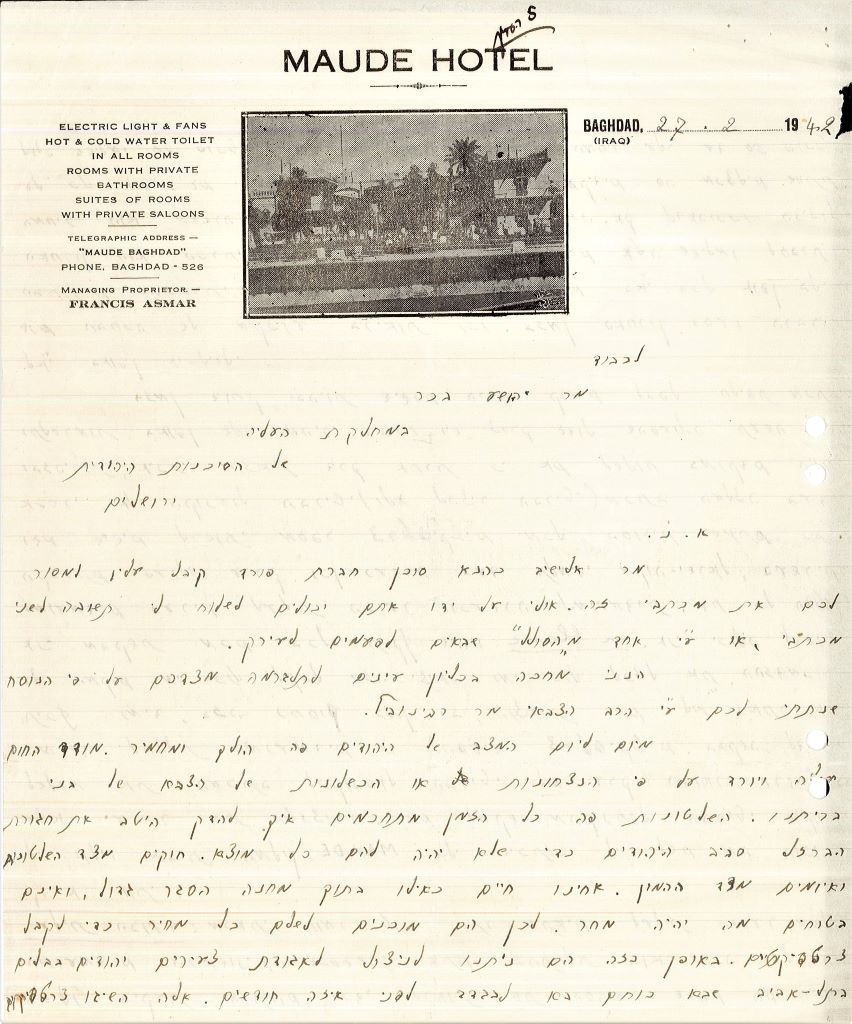 5 העתק
MAUDE HOTEL
ELECTRIC LIGHT & FANS
HOT & COLD WATER TOILET
IN ALL ROOMS
ROOMS WITH PRIVATE
BATHROOMS
SUITES OF ROOMS
WITH PRIVATE SALOONS
TELEGRAPHIC ADDRESS —
"MAUDE BAGHDAD"
PHONE, BAGHDAD - 526
MANAGING PROPRIETOR.—
FRANCIS ASMAR
BAGHDAD, 27.2 1942
(IRAQ)
לכבוד
מר יהושע בכר
במחלקת העליה
של הסוכנות היהודית
ירושלים
א. נ.
מר אלישיב כהנא סוכן חברת פורד קיבל עליו למסור
לכם את מכתבי זה. אולי על ידו אתם יכולים לשלוח לי תשובה לשני
מכתבי, או ע"י אחד מ"הסולל" שבאים לפעמים לעירק.
הנני מחכה בכליון עינים לתלגרמה מצדכם על פי הנוסח
שנתתי לכם ע"י הרב הצבאי מר רבינוביץ.
מיום ליום המצב של היהודים פה הולך ומחמיר. מודד החום
עולה ויורד על פי הנצחונות או הכשלונות של הצבא של בני
בריתנו. השלטונות פה כל הזמן מתחכמים איך להדק היטב את חגורת
הברזל סביב היהודים כדי שלא יהיה להם כל מוצא. חוקים מצד השלטונות
ואיומים מצד ההמון. אחינו חיים כאילו בתוך מחנה הסגר גדול, ואינם
בטוחים מה יהיה מחר. לכן הם מוכנים לשלם כל מחיר כדי לקבל
צרטפיקטים. באופן כזה הם ניתנו לניצול לאגודת צעירים יהודים בבלים
בתל-אביב שבא כוחם בא לבגדד לפני איזה חודשים. אלה השיגו צרטפיקטים